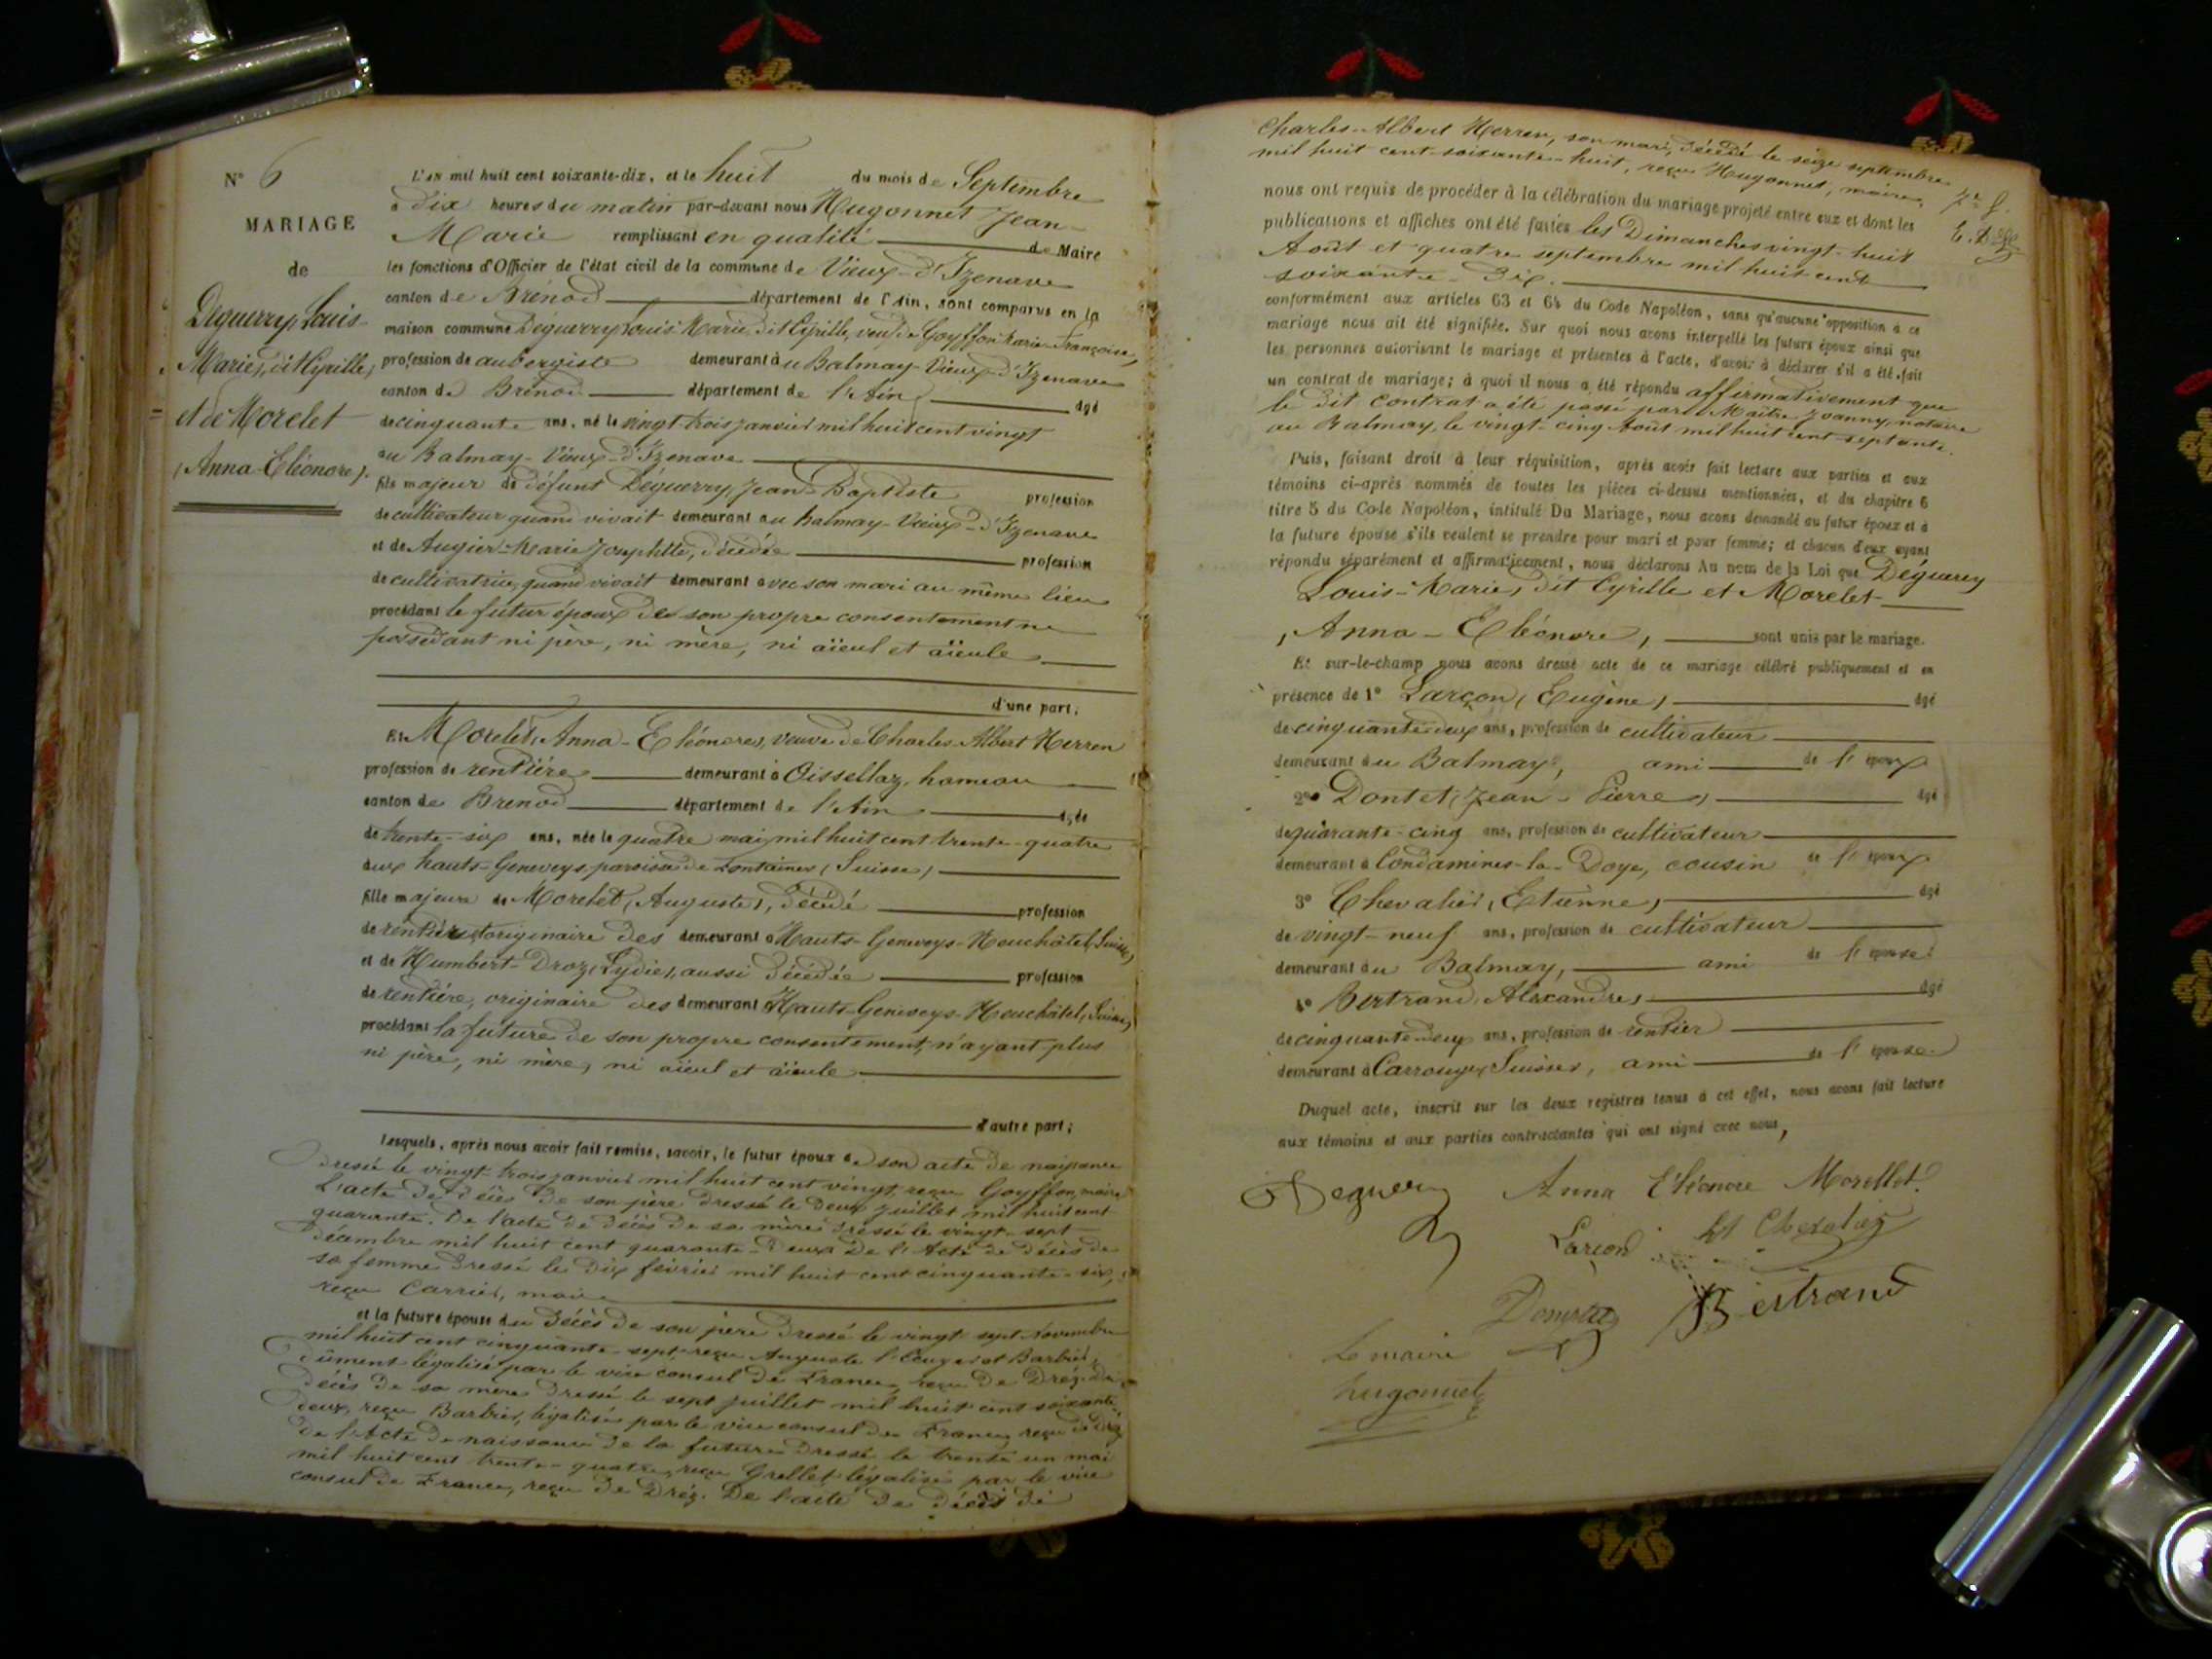 N° 6
MARIAGE
de
Déguerry Louis-
Marie, dit Cyrille,
et de Morelet
(Anna-Eléonore).
L'an mil huit cent soixante-dix, et le huit du mois de Septembre
à dix heures du matin par-devant nous Hugonnet Jean-
Marie remplissant en qualité de Maire
les fonctions d'Officier de l'état civil de la commune de Vieux-d'Izenave
canton de Brénod département de l'Ain, sont comparus en la
maison commune Déguerry Louis Marie dit Cyrille, veuf de Goyffon Marie Françoise,
profession de aubergiste demeurant au Balmay-Vieux-d'Izenave
canton de Brénod département de l'Ain âgé
de cinquante ans, né le vingt-trois janvier mil huit cent vingt
au Balmay-Vieux-d'Izenave
fils majeur de défunt Déguerry, Jean-Baptiste profession
de cultivateur quand vivait demeurant au Balmay-Vieux-d'Izenave
et de Augier Marie Josephtte, décédée profession
de cultivatrice, quand vivait demeurant avec son mari au même lieu
procédant le futur époux de son propre consentement ne
possédant ni père, ni mère, ni aïeul et aïeule
d'une part;
Et Morelet, Anna-Eléonore, veuve de Charles-Albert Herren
profession de rentière demeurant à Oissellaz, hameau
canton de Brenod département de l'Ain âgée
de trente-six ans, née le quatre mai mil huit cent trente-quatre
aux hauts-Geneveys paroisse de Fontaines (Suisse)
fille majeure de Morelet (Auguste), décédé profession
de rentier, originaire des demeurant Hauts-Geneveys-Neuchâtel (Suisse)
et de Humbert-Droz (Lydie), aussi décédée profession
de rentière, originaire des demeurant Hauts-Geneveys-Neuchâtel (Suisse)
procédant la future de son propre consentement, n'ayant plus
ni père, ni mère, ni aïeul et aïeule
d'autre part;
Lesquels, après nous avoir fait remise, savoir, le futur époux de son acte de naissance
dressé le vingt-trois janvier mil huit cent vingt, reçu Goyffon, maire
L'acte de décès de son père dressé le deux juillet mil huit cent
quarante. De l'acte de décès de sa mère dressé le vingt-sept
décembre mil huit cent quarante-deux. De l'Acte de décès de
sa femme dressé le dix février mil huit cent cinquante-six,
reçu Carrier, maire
et la future épouse du décès de son père dressé le vingt sept Novembre
mil huit cent cinquante-sept reçu Auguste et Barbier,
dûment légalisé par le vice consul de France, reçu De Dréz. Du
décès de sa mère dressé le sept juillet mil huit cent soixante-
deux, reçu Barbier, légalisé par le vice consul de France, reçu de Dréz
De l'Acte de naissance de la future dressé le trente un mai
mil huit cent trente-quatre, reçu Grellet, légalisé par le vice
consul de France, reçu De Dréz. De l'acte de décès de
Charles-Albert Herren, son mari, décédé le seize septembre
mil huit cent soixante-huit, reçu Hugonnet, maire,
nous ont requis de procéder à la célébration du mariage projeté entre eux et dont les
publications et affiches ont été faites les Dimanches vingt-huit
Août et quatre septembre mil huit cent
soixante-dix.
conformément aux articles 63 et 64 du Code Napoléon, sans qu'aucune opposition à ce
mariage nous ait été signifiée. Sur quoi nous avons interpellé les futurs époux ainsi que
les personnes autorisant le mariage et présentes à l'acte, d'avoir à déclarer s'il a été fait
un contrat de mariage; à quoi il nous a été répondu affirmativement que
le dit contrat a été passé par Maître Joanny, notaire
au Balmay, le vingt-cinq Août mil huit cent septante.
Puis, faisant droit à leur réquisition, après avoir fait lecture aux parties et aux
témoins ci-après nommés de toutes les pièces ci-dessus mentionnées, et du chapitre 6
titre 5 du Code Napoléon, intitulé Du Mariage, nous avons demandé au futur époux et à
la future épouse s'ils veulent se prendre pour mari et pour femme; et chacun d'eux ayant
répondu séparément et affirmativement, nous déclarons Au nom de la Loi que Déguerry
Louis-Marie, dit Cyrille et Morelet
, Anna-Eléonore, sont unis par le mariage.
Et sur-le-champ nous avons dressé acte de ce mariage célébré publiquement et en
présence de 1° Larçon (Eugène) âgé
de cinquante-deux ans, profession de cultivateur
demeurant au Balmay, ami de l'époux
2° Dontet, Jean-Pierre, âgé
de quarante-cinq ans, profession de cultivateur
demeurant à Condamines-la-Doye, cousin de l'époux
3° Chevalier, Etienne, âgé
de vingt-neuf ans, profession de cultivateur
demeurant au Balmay, ami de l'épouse
4° Bertrand, Alexandre, âgé
de cinquante-deux ans, profession de rentier
demeurant à Carrouge, Suisse, ami de l'épouse
Duquel acte, inscrit sur les deux registres tenus à cet effet, nous avons fait lecture
aux témoins et aux parties contractantes qui ont signé avec nous,
Deguerry Anna Eléonore Morellet
Larçon Et Chevalier
Bertrand
Le maire
hugonnet